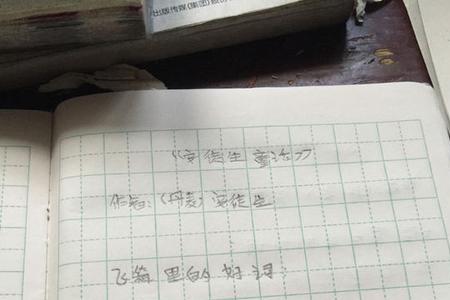 出版传媒(集团)股份
《安徒生童话》
作者：(丹麦)安徒生
飞箱里的好词：